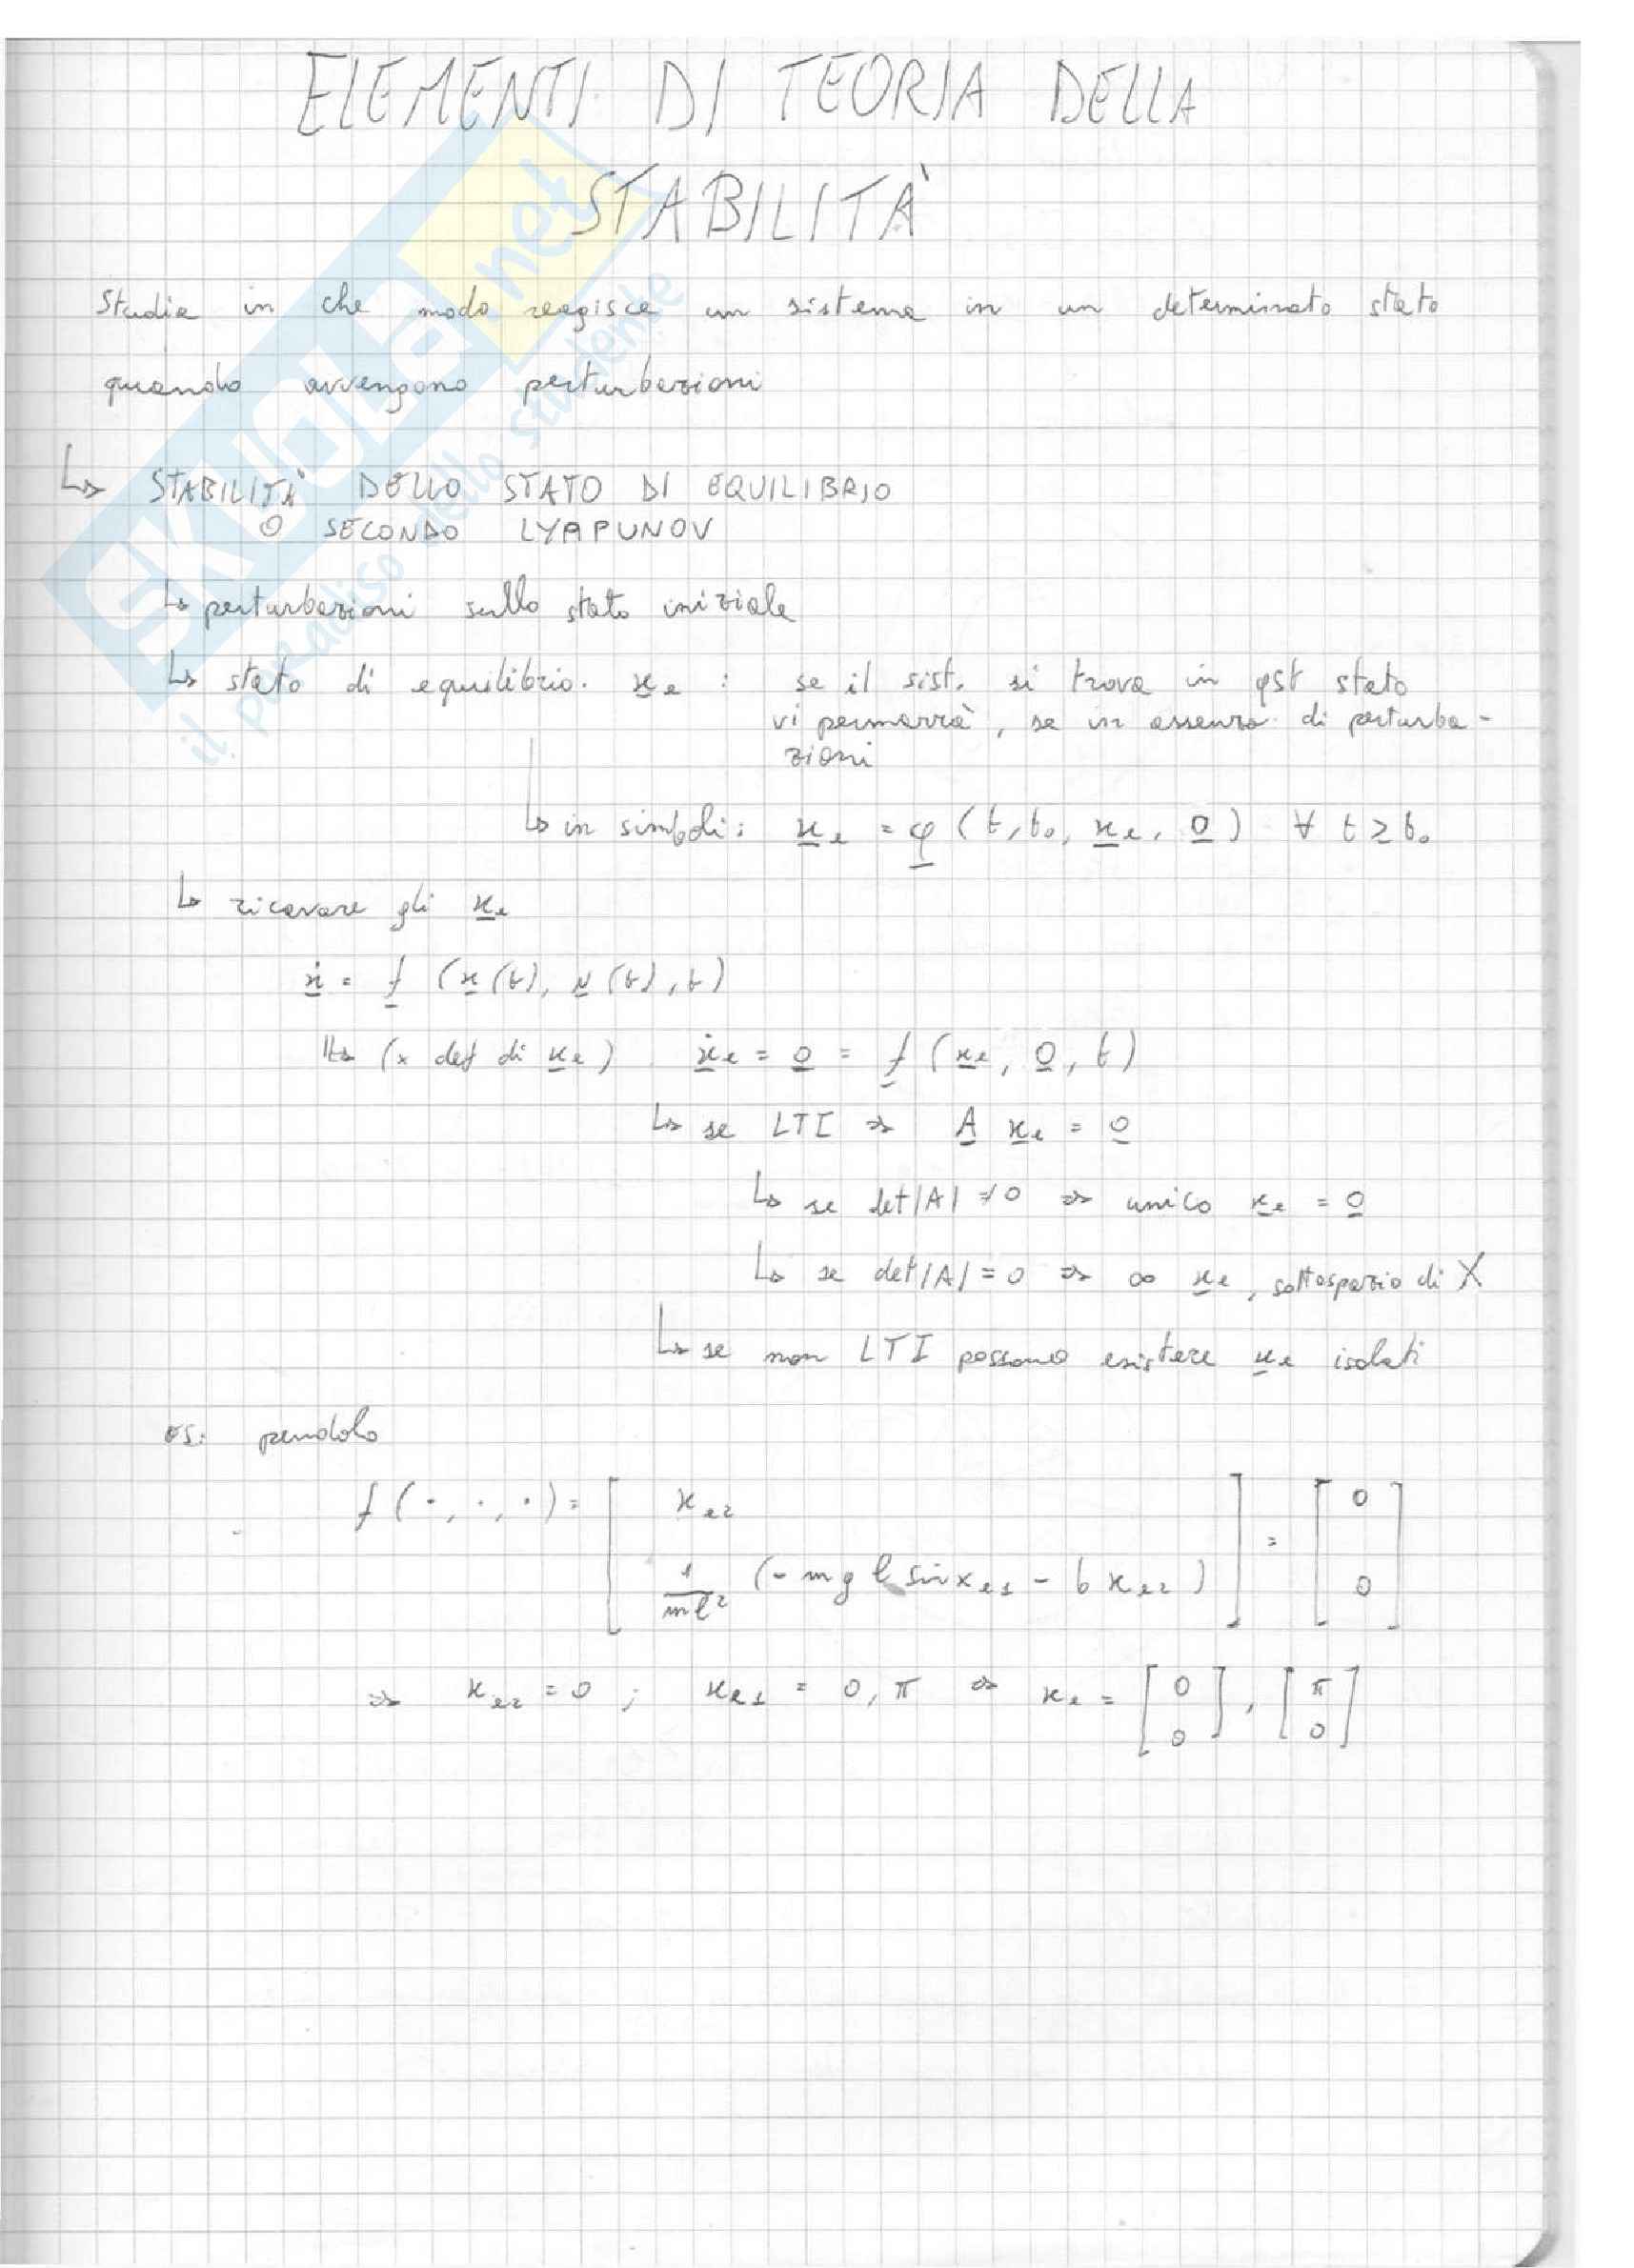 ELEMENTI DI TEORIA DELLA
STABILITÀ
Studia in che modo reagisce un sistema in un determinato stato
quando avvengono perturbazioni
↳ STABILITÀ DELLO STATO DI EQUILIBRIO
O SECONDO LYAPUNOV
↳ perturbazioni sullo stato iniziale
↳ stato di equilibrio. x_e : se il sist. si trova in qst stato
vi permarrà, se in assenza di perturba-
zioni
↳ in simboli: x_e = φ (t, t₀, x_e, 0) ∀ t ≥ t₀
↳ ricavare gli x_e
ẋ = f (x(t), u(t), t)
⇒ (x def di x_e) ẋ_e = 0 = f (x_e, 0, t)
↳ se LTI ⇒ A x_e = 0
↳ se det|A| ≠ 0 ⇒ unico x_e = 0
↳ se det|A| = 0 ⇒ ∞ x_e, sottospazio di X
↳ se non LTI possono esistere x_e isolati
es: pendolo
f (·, ·, ·) = [ x_e2 ; 1/ml² (- m g l sin x_e1 - b x_e2) ] = [ 0 ; 0 ]
⇒ x_e2 = 0 ; x_e1 = 0, π ⇒ x_e = [ 0 ; 0 ], [ π ; 0 ]
SKUOLA.net
il paradiso dello studente